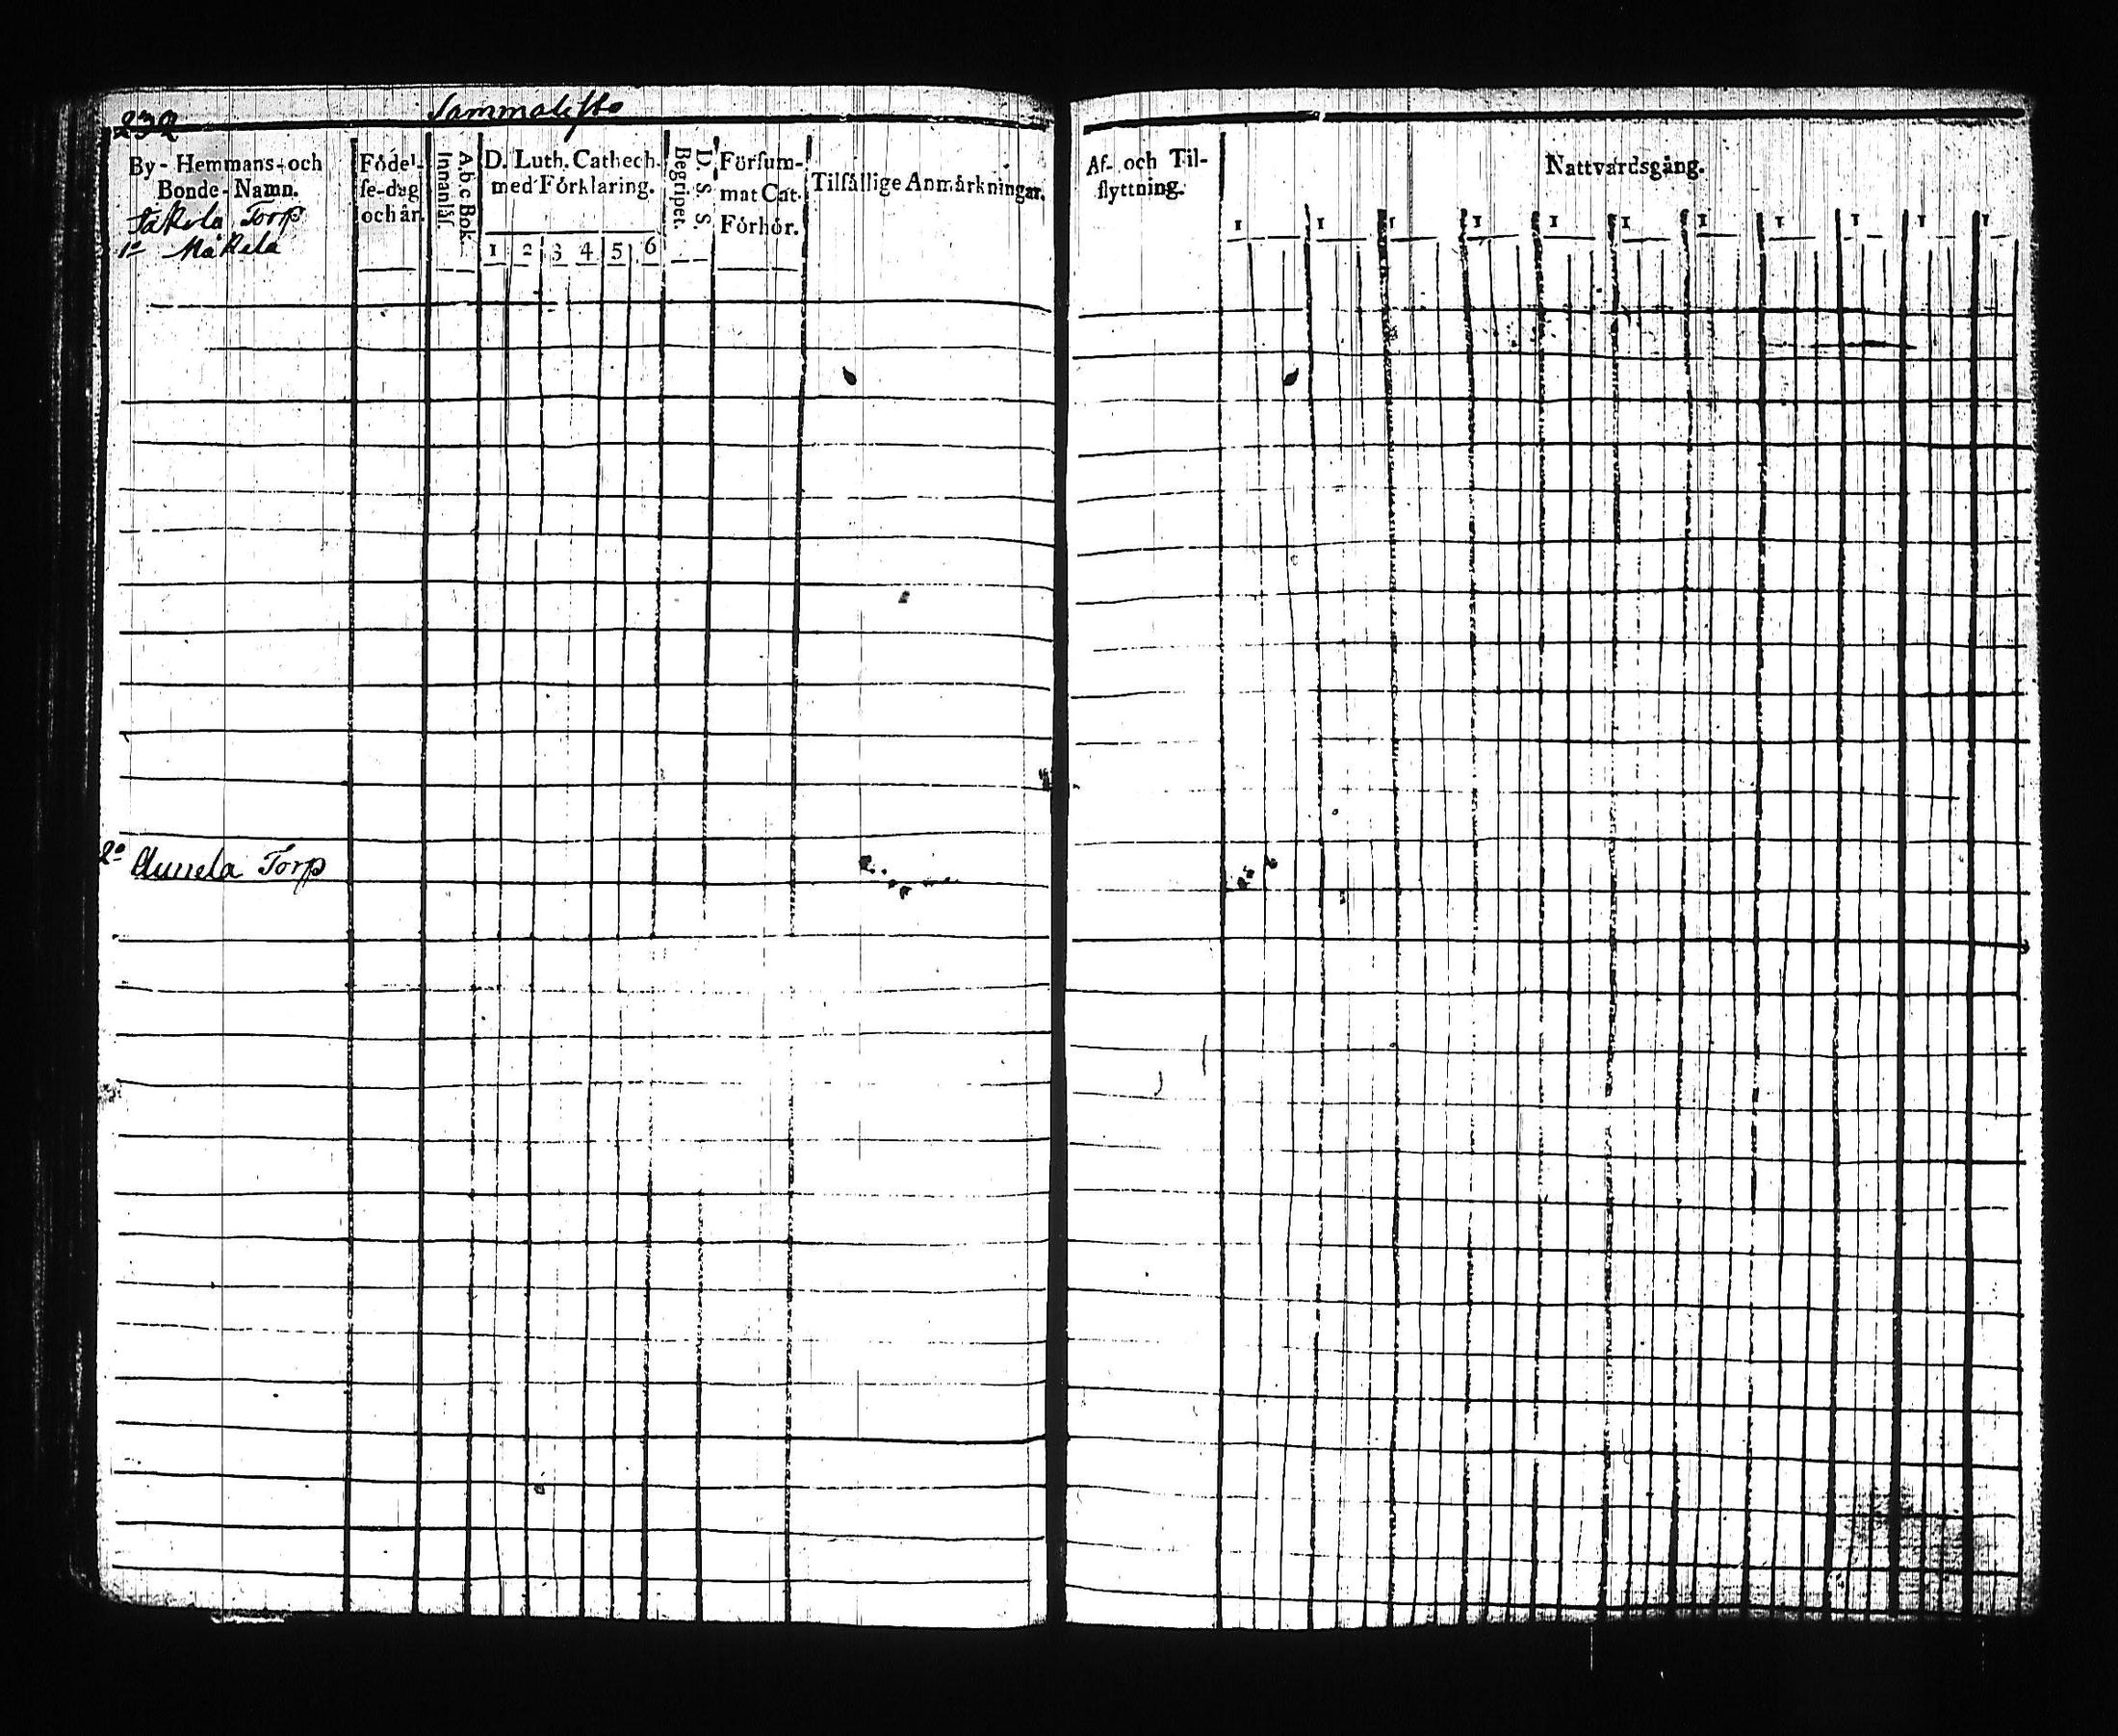 232
Sammalisto
By- Hemmans- och
Bonde-Namn.
Jakola Torp
1o Mäkelä
Födel-
se-dag
och år.
A.b.c Bok.
Innanläs.
D. Luth. Cathech.
med Förklaring.
1 2 3 4 5 6
D. S. S.
Begripet.
Försum-
mat Cat.
Förhör.
Tilfällige Anmärkningar.
Af- och Til-
flyttning.
Nattvardsgång.
1 1 1 1 1 1 1 1 1 1 1
2o Torp